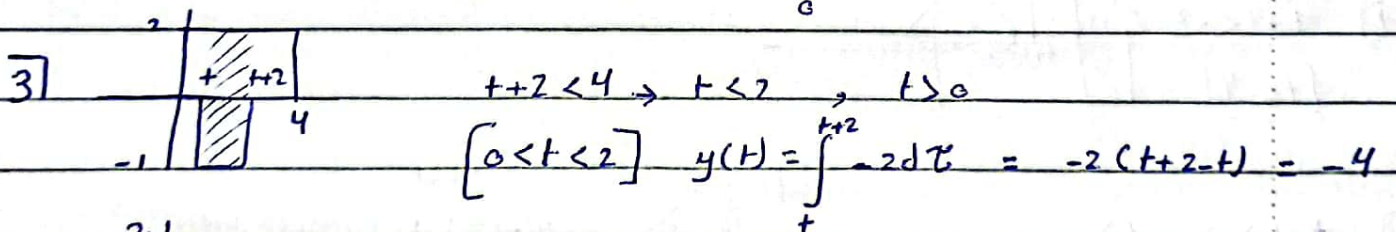 2
3] t t+2 t+2<4 → t<2 , t>0
4
-1 [0<t<2] y(t) = ∫_t^{t+2} -2dτ = -2(t+2-t) = -4